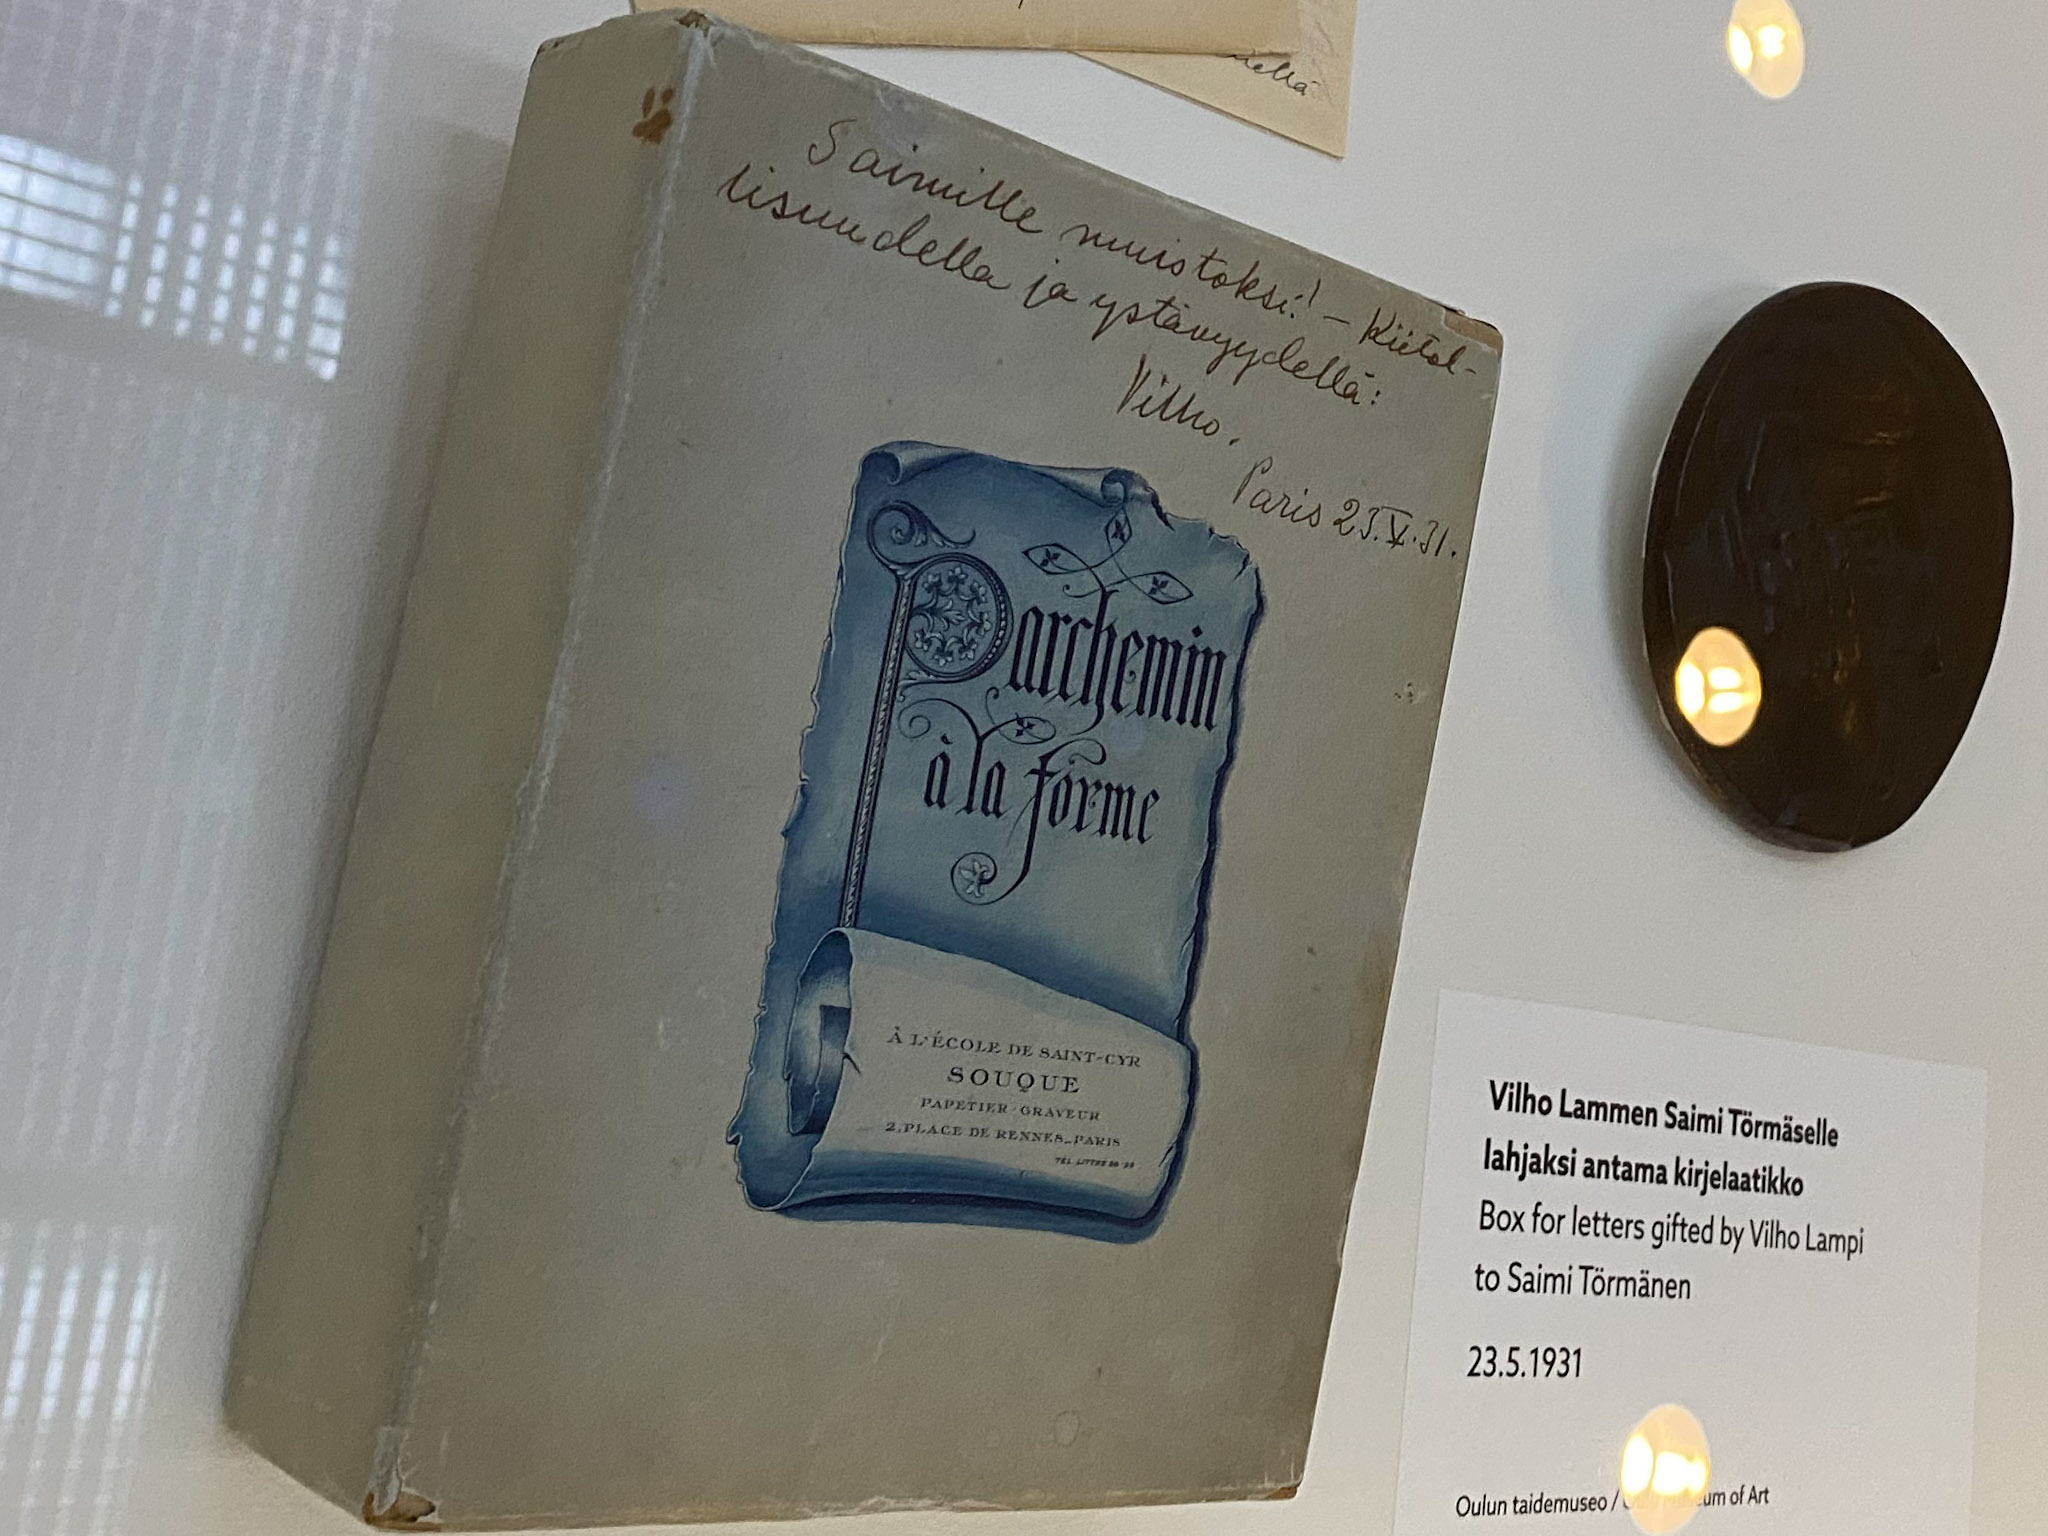 Saimille muistoksi! – Kiitol-
lisuudella ja ystävyydellä:
Vilho.
Paris 23.V.31.
Parchemin
à la forme
À L'ÉCOLE DE SAINT-CYR
SOUQUE
PAPETIER-GRAVEUR
2, PLACE DE RENNES_PARIS
TÉL. LITTRÉ
Vilho Lammen Saimi Törmäselle
lahjaksi antama kirjelaatikko
Box for letters gifted by Vilho Lampi
to Saimi Törmänen
23.5.1931
Oulun taidemuseo / Oulu Museum of Art